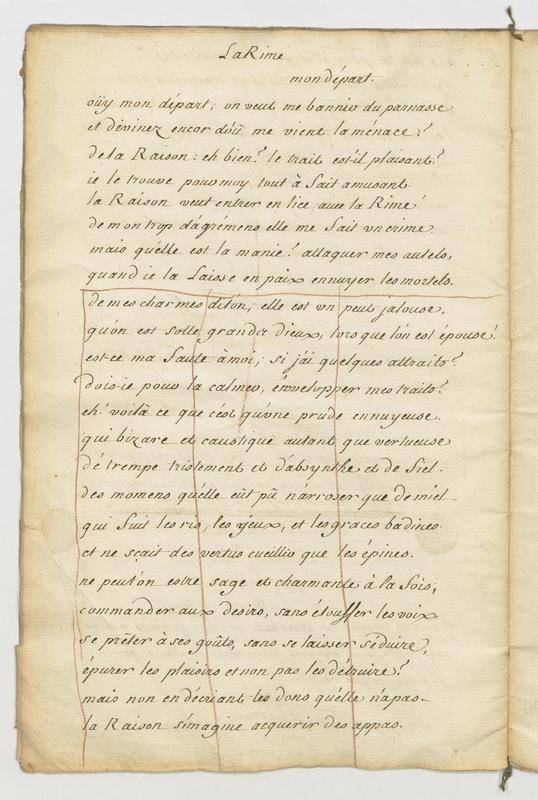 La Rime
mon départ.
oüy mon départ; on veut me bannir du parnasse
et dévinez encor d'où me vient la ménace?
de la Raison: eh bien? le trait est-il plaisant?
ie le trouve pour moy tout à fait amusant.
la Raison veut entrer en lice avec la Rime!
de mon trop d'agrémens elle me fait un crime.
mais qu'elle est la manie? attaquer mes autels,
quand ie la Laisse en paix ennuyer les mortels.
de mes charmes dit'on, elle est un peu jalouse.
qu'on est folle grands dieux, lors que l'on est épouse!
est-ce ma faute à moi; si j'ai quelques attraits?
dois-ie pour la calmer, énvelopper mes traits?
eh! voilà ce que c'est qu'une prude ennuyeuse.
qui bizare et caustique autant que vertueuse
dé trempe tristement et d'absynthe et de fiel.
des momens qu'elle eût pû n'arroser que de miel
qui fuit les ris, les yjeux, et les graces badines
et ne sçait des vertus cueillir que les épines.
ne peut'on estre sage et charmante à la fois;
commander aux desirs, sans étouffer les voix.
se prêter à ses goûts, sans se laisser séduire,
épurer les plaisirs et non pas les détruire?
mais non en décriant les dons qu'elle n'a pas
la Raison s'imagine acquerir des appas.